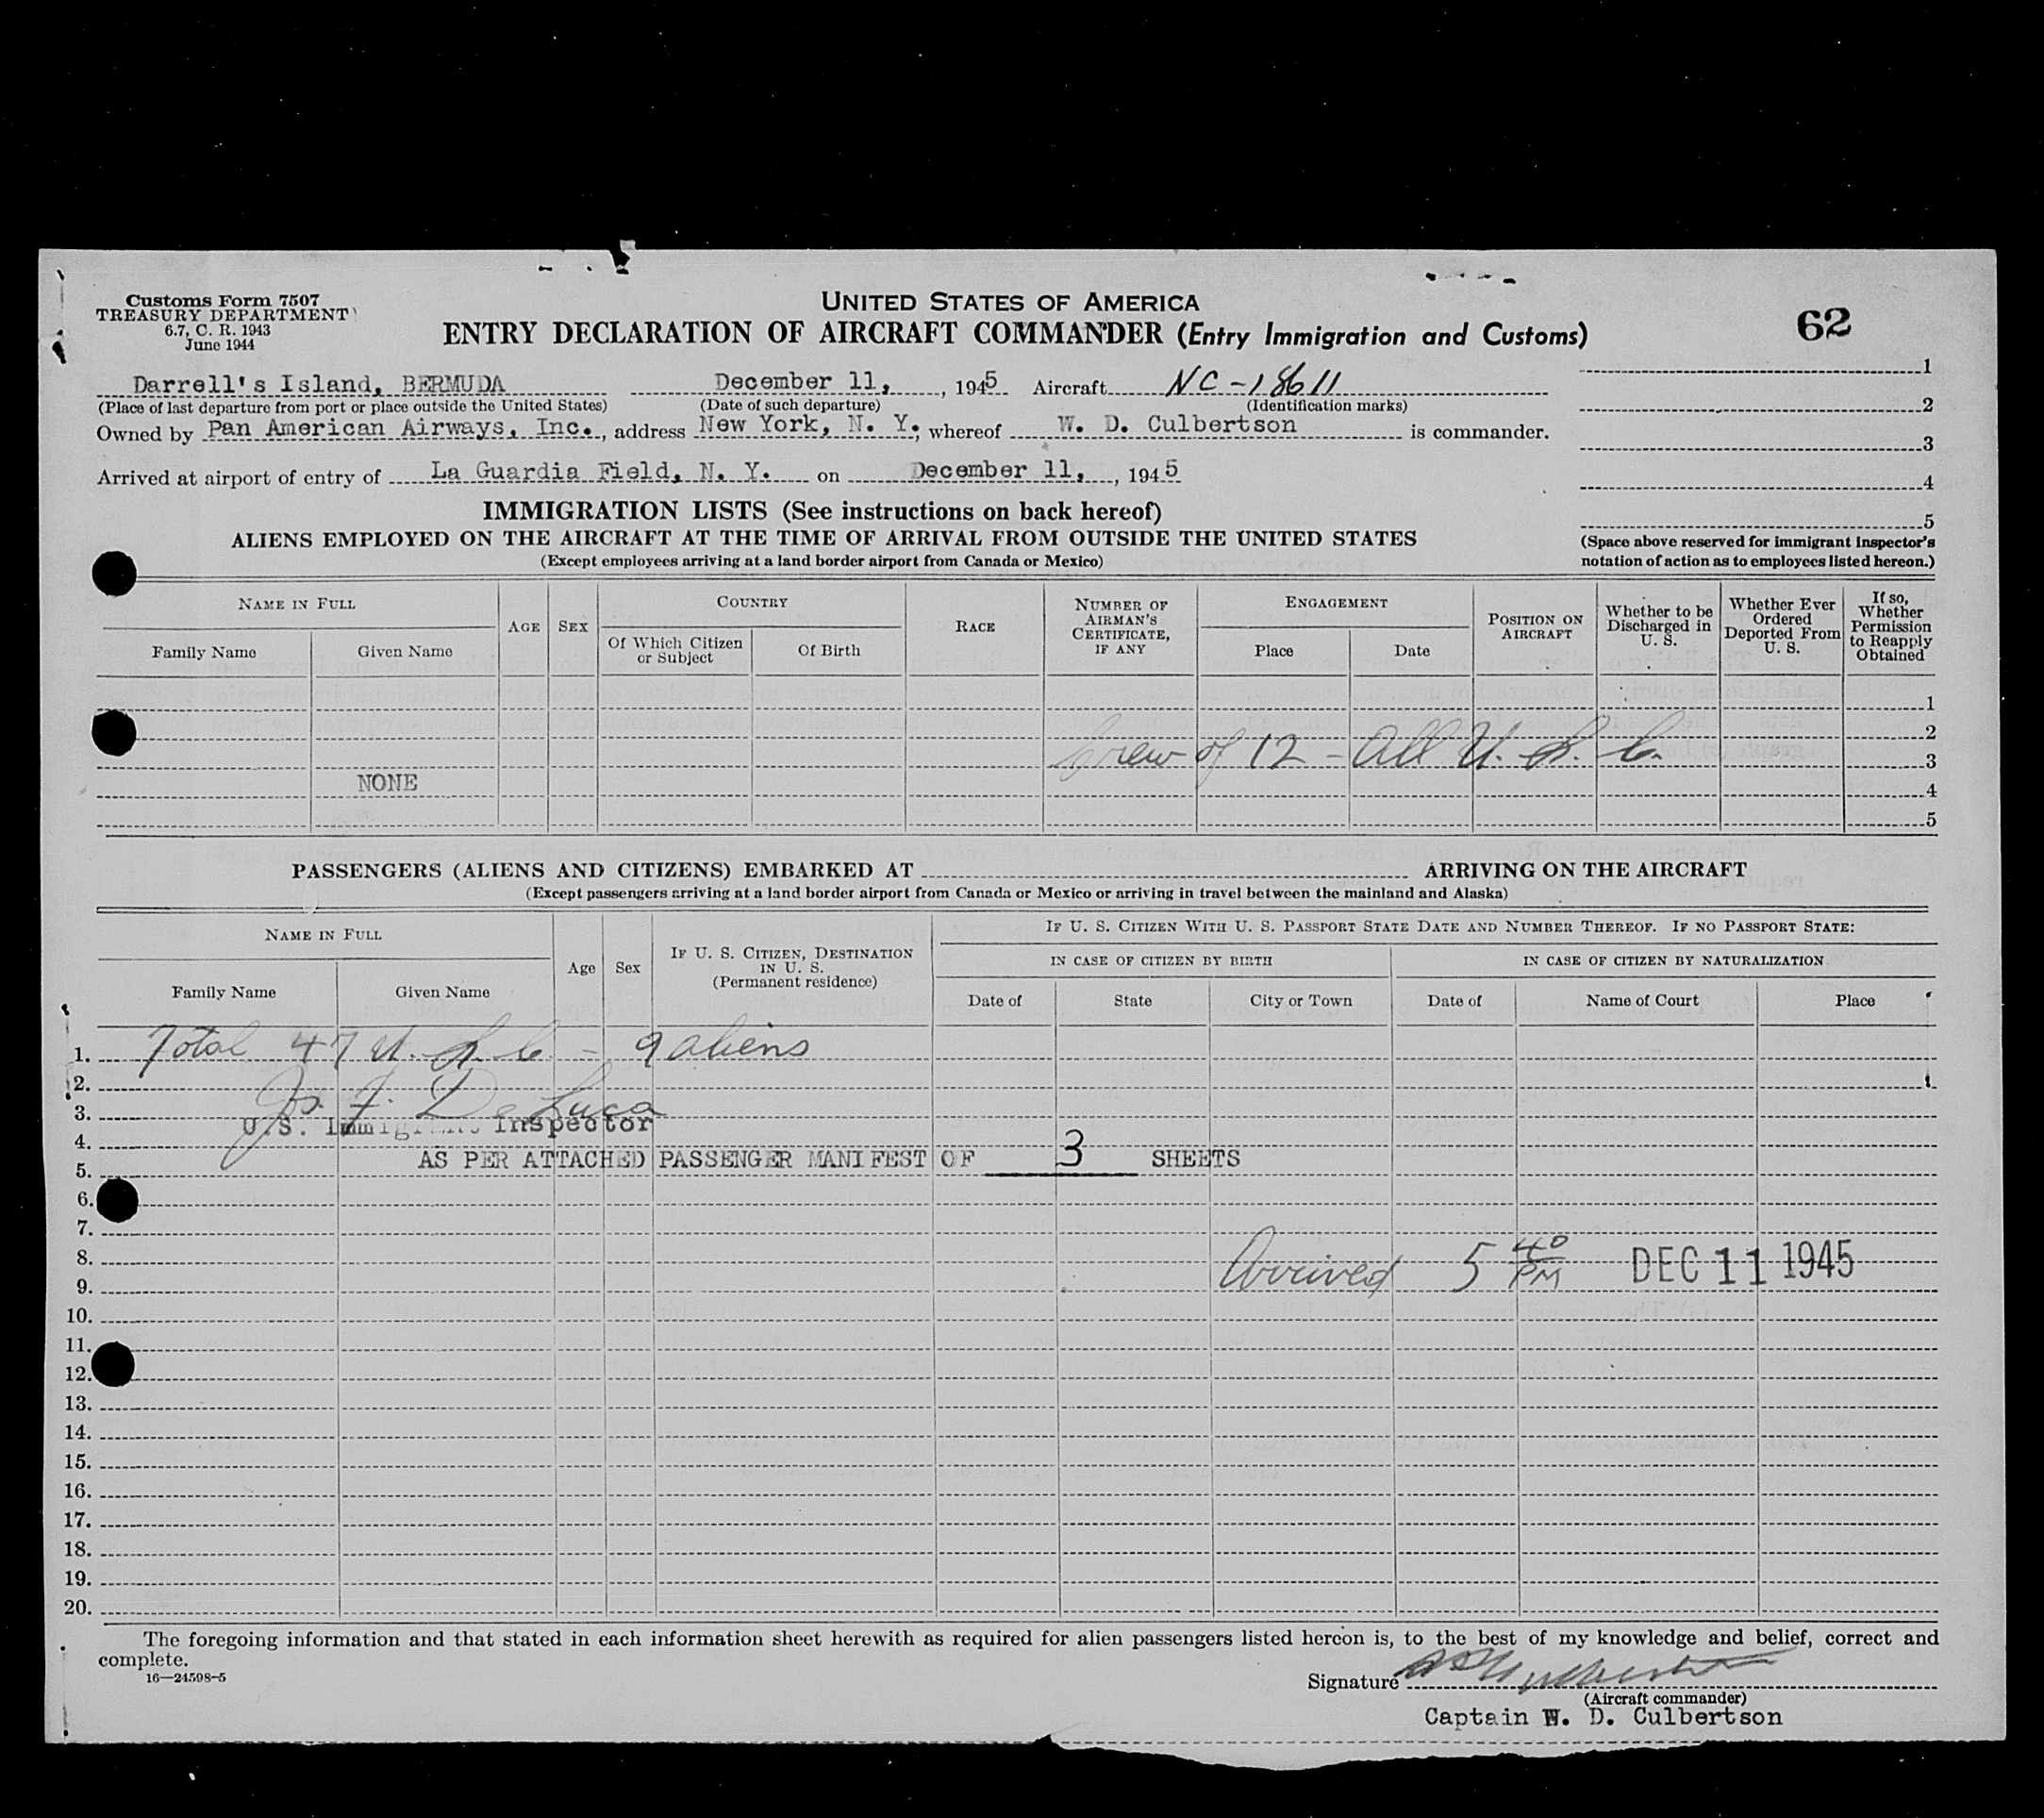 Customs Form 7507
TREASURY DEPARTMENT
6.7, C. R. 1943
June 1944
UNITED STATES OF AMERICA
ENTRY DECLARATION OF AIRCRAFT COMMANDER (Entry Immigration and Customs)
62
Darrell's Island, BERMUDA December 11, , 1945 Aircraft NC-18611
(Place of last departure from port or place outside the United States) (Date of such departure) (Identification marks)
Owned by Pan American Airways, Inc., address New York, N. Y., whereof W. D. Culbertson is commander.
Arrived at airport of entry of La Guardia Field, N. Y. on December 11, , 1945
1
2
3
4
5
(Space above reserved for immigrant inspector's notation of action as to employees listed hereon.)
IMMIGRATION LISTS (See instructions on back hereof)
ALIENS EMPLOYED ON THE AIRCRAFT AT THE TIME OF ARRIVAL FROM OUTSIDE THE UNITED STATES
(Except employees arriving at a land border airport from Canada or Mexico)
NAME IN FULL
Family Name Given Name
AGE
SEX
COUNTRY
Of Which Citizen or Subject Of Birth
RACE
NUMBER OF AIRMAN'S CERTIFICATE, IF ANY
ENGAGEMENT
Place Date
POSITION ON AIRCRAFT
Whether to be Discharged in U. S.
Whether Ever Ordered Deported From U. S.
If so, Whether Permission to Reapply Obtained
1
2
Crew of 12 - All U. S. C. 3
NONE 4
5
PASSENGERS (ALIENS AND CITIZENS) EMBARKED AT ARRIVING ON THE AIRCRAFT
(Except passengers arriving at a land border airport from Canada or Mexico or arriving in travel between the mainland and Alaska)
NAME IN FULL
Family Name Given Name
Age
Sex
IF U. S. CITIZEN, DESTINATION IN U. S.
(Permanent residence)
IF U. S. CITIZEN WITH U. S. PASSPORT STATE DATE AND NUMBER THEREOF. IF NO PASSPORT STATE:
IN CASE OF CITIZEN BY BIRTH IN CASE OF CITIZEN BY NATURALIZATION
Date of State City or Town Date of Name of Court Place
1. Total 47 U. S. C. - 9 aliens
2.
3. De Luca
U.S. Immigrant Inspector
4.
AS PER ATTACHED PASSENGER MANIFEST OF 3 SHEETS
5.
6.
7.
8. Arrived 5 40 PM DEC 11 1945
9.
10.
11.
12.
13.
14.
15.
16.
17.
18.
19.
20.
The foregoing information and that stated in each information sheet herewith as required for alien passengers listed hereon is, to the best of my knowledge and belief, correct and
complete.
16—24598-5
Signature W D Culbertson
(Aircraft commander)
Captain W. D. Culbertson